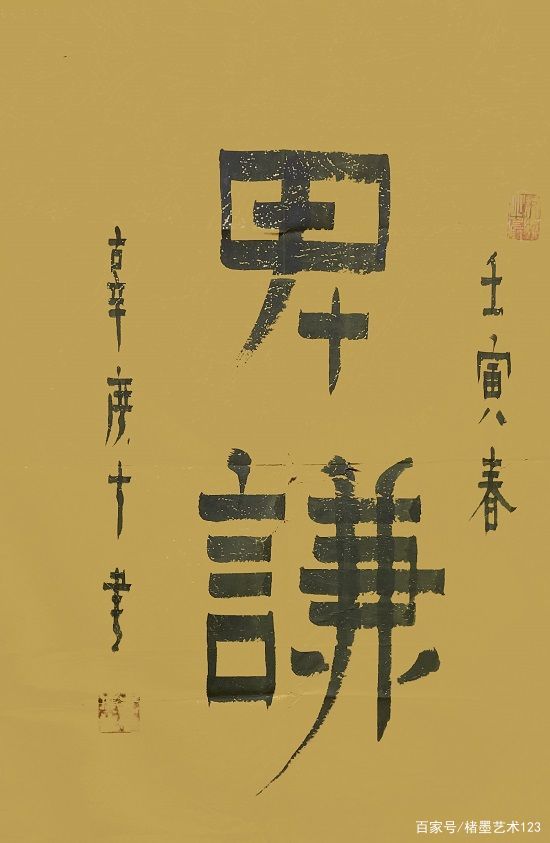 壬寅春
卑謙
辜書
百家号/楮墨艺术123